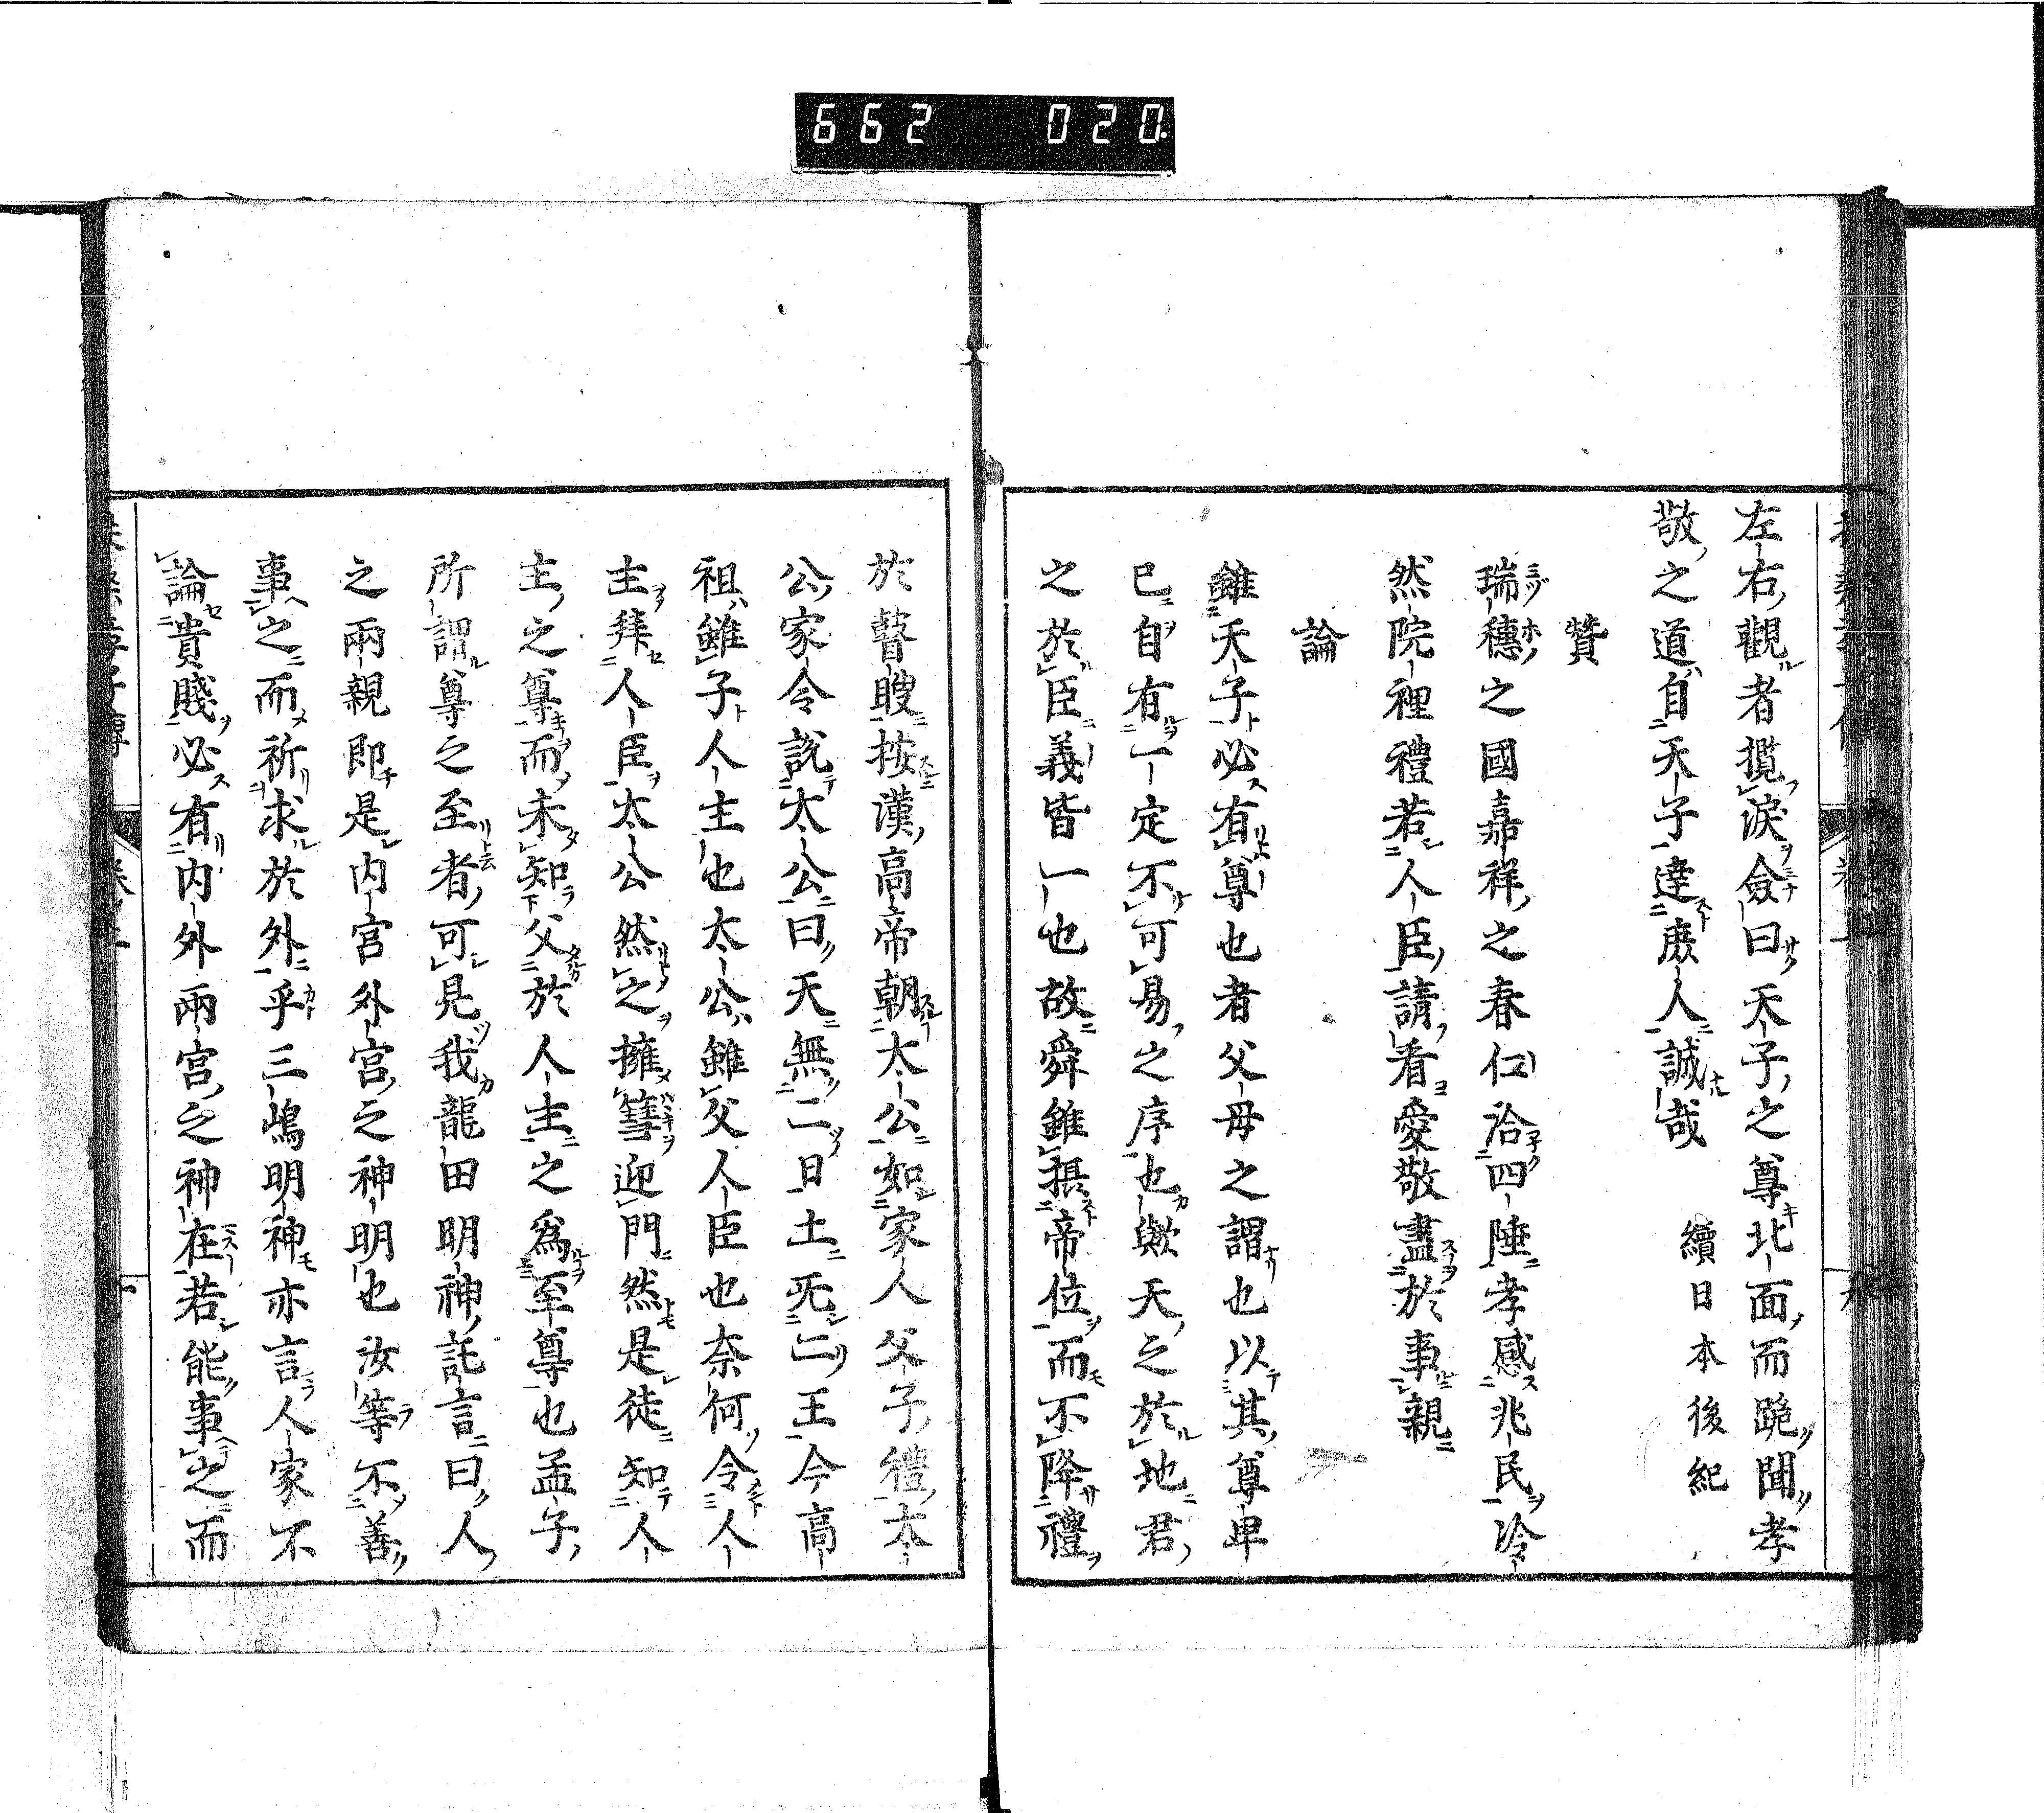 662 020.
左右觀者攬淚僉曰天子之尊北面而跪聞孝
敬之道自天子達庶人誠哉 續日本後紀
贊
瑞穗之國嘉祥之春仁洽四陲孝感兆民冷
然院裡禮若人臣請看愛敬盡於事親
論
雖天子必有尊也者父母之謂也以其尊卑
已自有一定不可易之序也歟天之於地君
之於臣義皆一也故舜雖摂帝位而不降禮
於瞽瞍按漢高帝朝太公如家人父子禮太
公家令説太公曰天無二日土死二王今高
祖雖子人主也太公雖父人臣也奈何令人
主拜人臣太公然之擁篲迎門然是徒知人
主之尊而未知父於人主之為至尊也孟子
所謂尊之至者可見我龍田明神託言曰人
之兩親即是内宮外宮之神明也汝等不善
事之而祈求於外乎三嶋明神亦言人家不
論貴賤必有内外兩宮之神在若能事之而